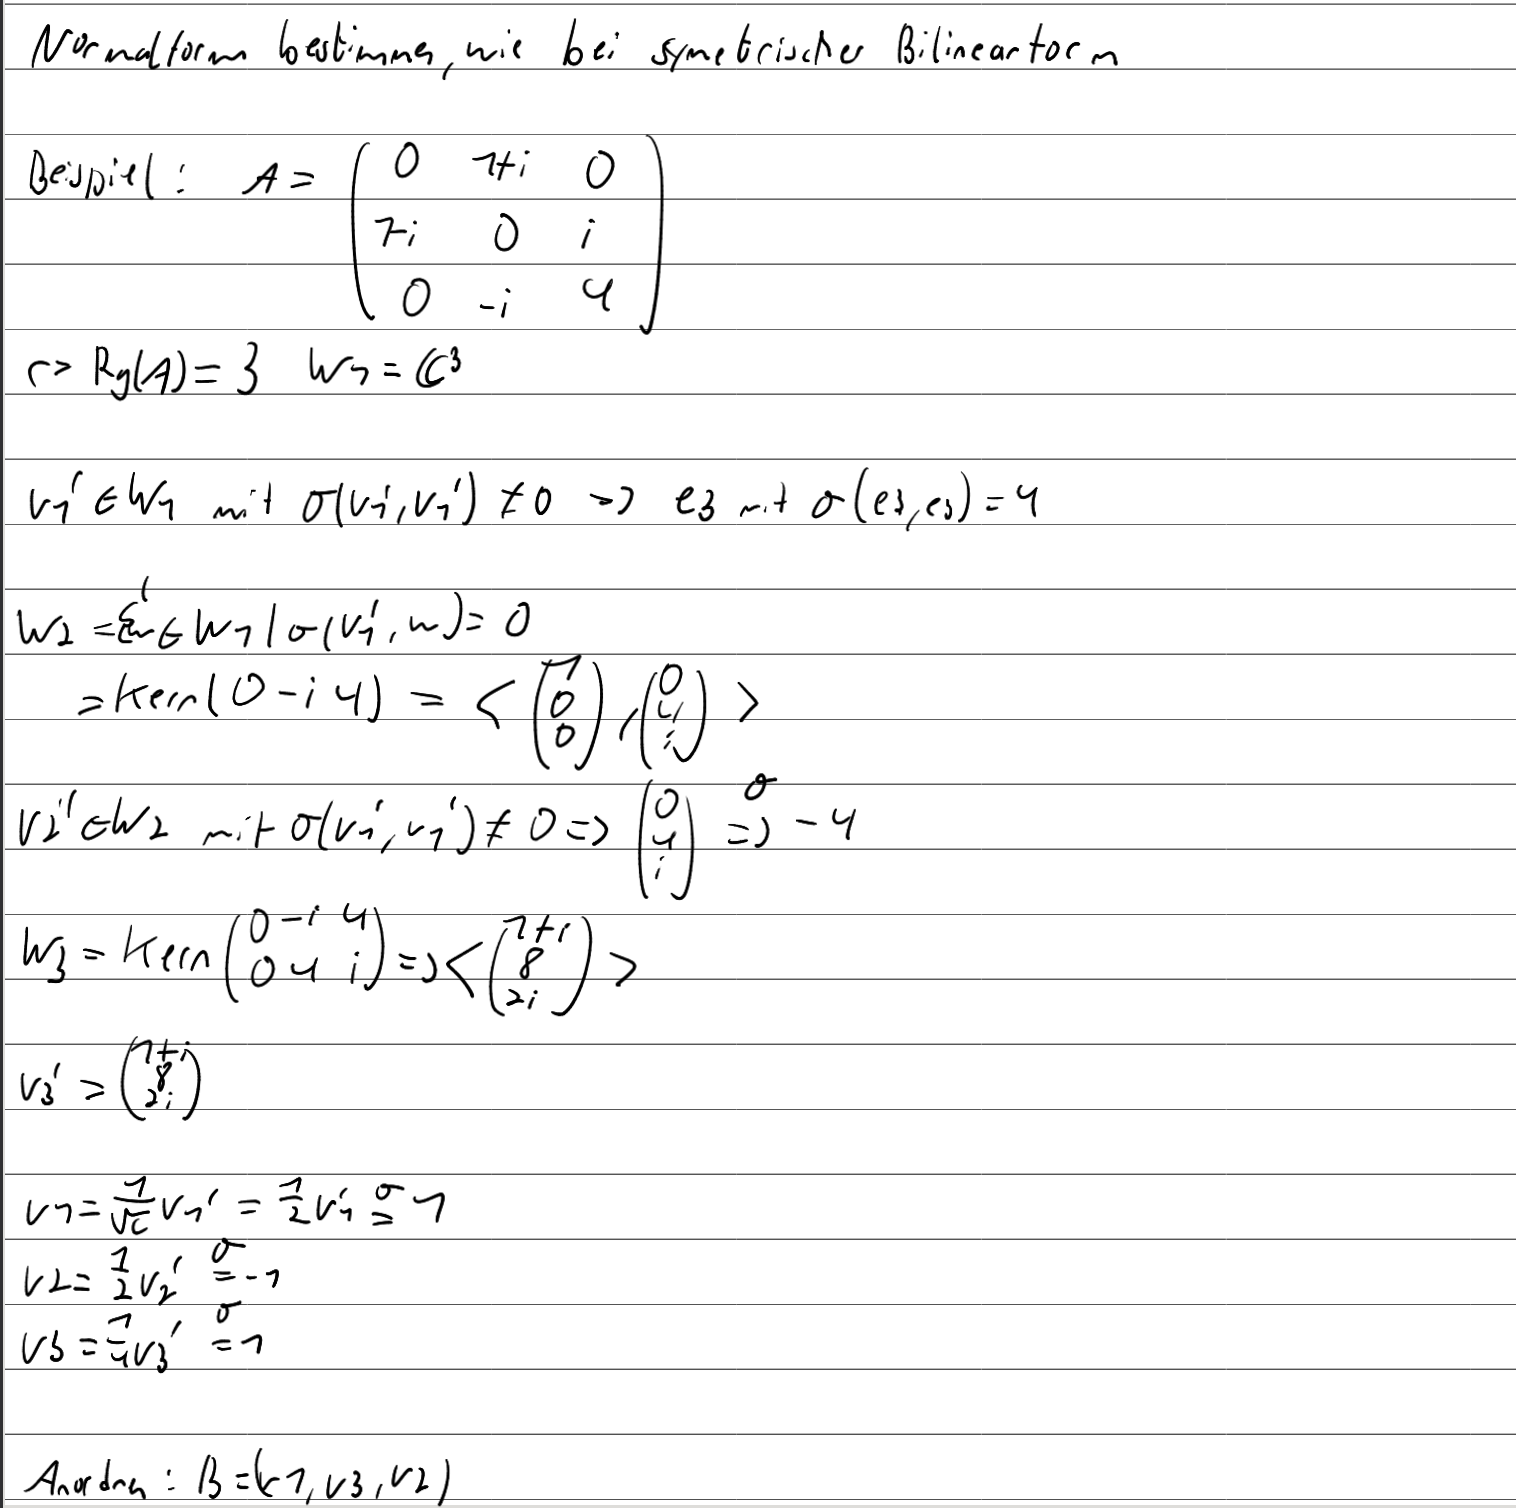 Normalform bestimmen, wie bei symetrischer Bilinearform
Beispiel: A = ( 0 1+i 0
1-i 0 i
0 -i 4 )
↪ Rg(A) = 3 W1 = ℂ³
v1' ∈ W1 mit σ(v1', v1') ≠ 0 => e3 mit σ(e3, e3) = 4
W2 = {w ∈ W1 | σ(v1', w) = 0
= Kern(0 -i 4) = < (1 0 0), (0 4 i) >
v2' ∈ W2 mit σ(v1', v1') ≠ 0 => (0 4 i) σ=> -4
W3 = Kern (0 -i 4
0 4 i) => < (1+i 8 2i) >
v3' = (1+i 8 2i)
v1 = 1/√c v1' = 1/2 v1' σ= 1
v2 = 1/2 v2' σ= -1
v3 = 1/4 v3' σ= 1
Anordnen: B = (v1, v3, v2)